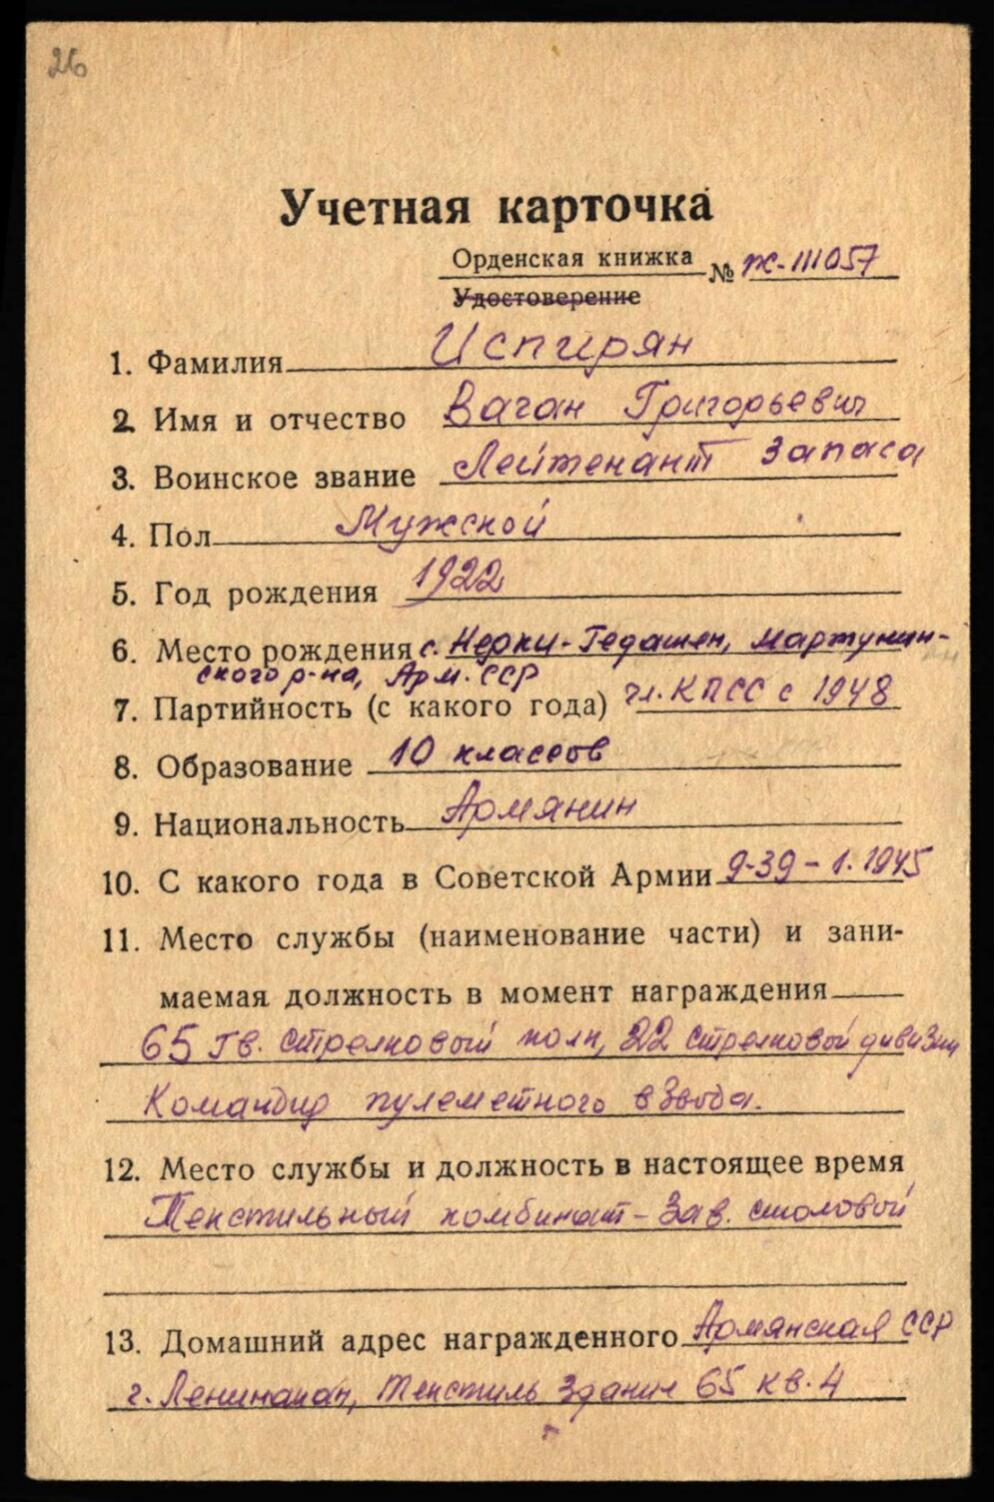 26
Учетная карточка
Орденская книжка № Ж-111057
Удостоверение
1. Фамилия Испирян
2. Имя и отчество Ваган Григорьевич
3. Воинское звание Лейтенант запаса
4. Пол Мужской
5. Год рождения 1922
6. Место рождения с. Нерки-Гедашен, Мартунин-
ского р-на, Арм. ССР
7. Партийность (с какого года) чл. КПСС с 1948
8. Образование 10 классов
9. Национальность Армянин
10. С какого года в Советской Армии 9-39 - 1.1945
11. Место службы (наименование части) и зани-
маемая должность в момент награждения
65 гв. стрелковый полк, 22 стрелковой дивизии
Командир пулеметного взвода.
12. Место службы и должность в настоящее время
Текстильный комбинат - Зав. столовой
13. Домашний адрес награжденного Армянская ССР
г. Ленинакан, Текстиль Здание 65 кв. 4